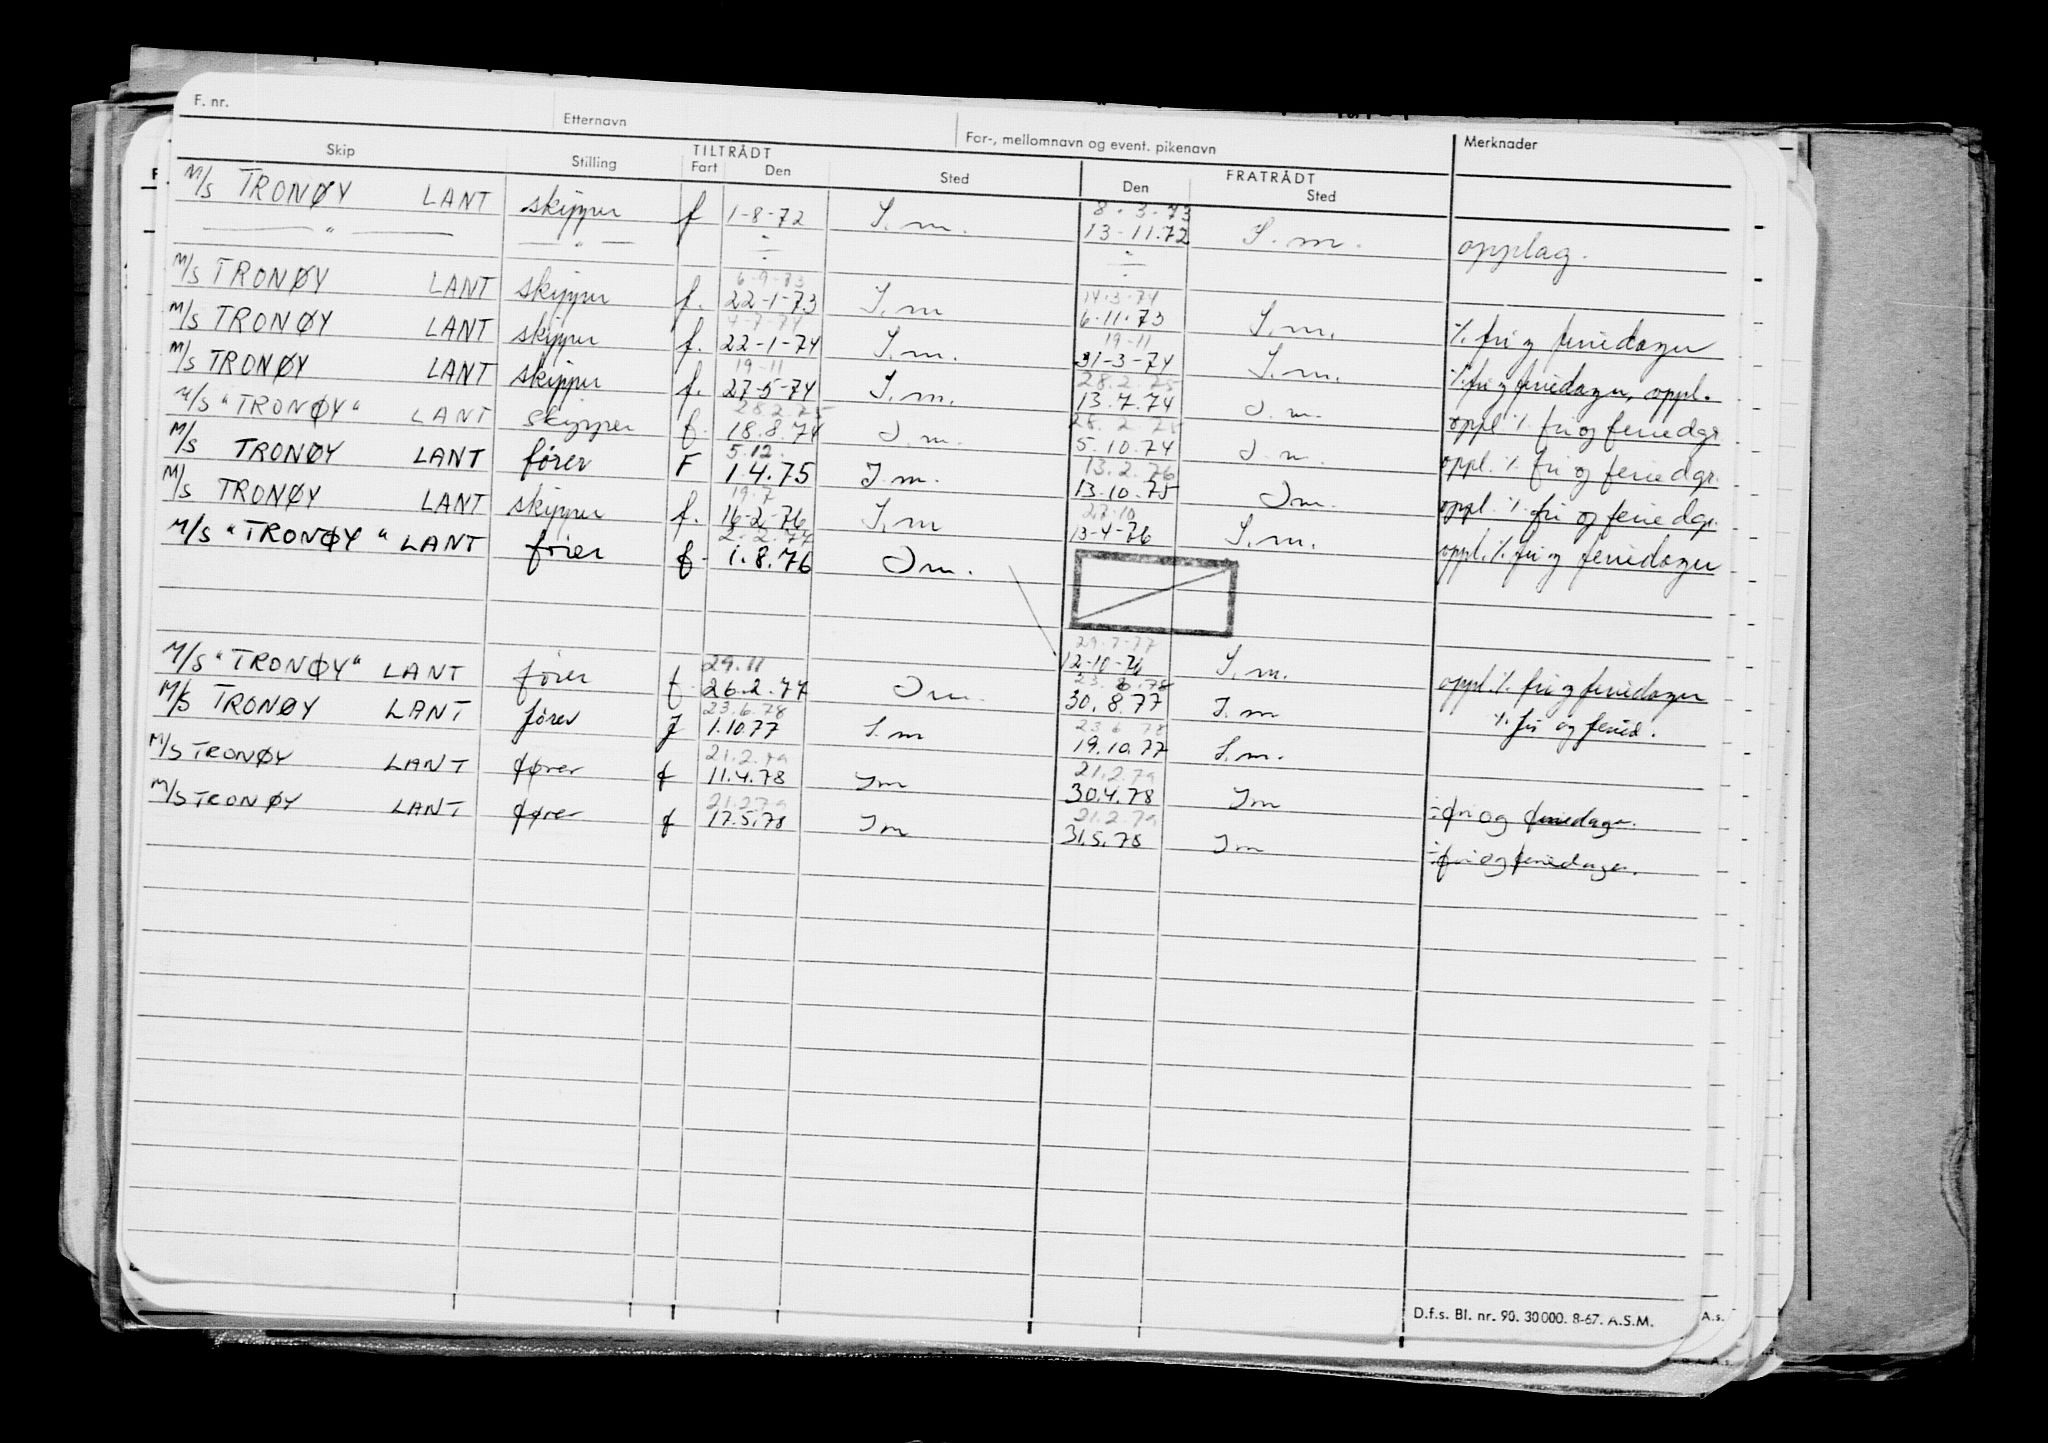 F. nr.
Etternavn
For-, mellomnavn og event. pikenavn
Merknader
Skip Stilling TILTRÅDT Fart Den Sted FRATRÅDT Den Sted
8-3-73
M/S TRONØY LANT skipper f 1-8-72 S.m. 13-11.72 S.m. opplag.
— " — — " — ÷ ÷
6-9-73 14-3-74
M/S TRONØY LANT skipper f. 22-1-73 S.m 6-11.73 S.m. % fri og feriedager
4-7-74 19-11
M/S TRONØY LANT skipper f. 22-1-74 S.m. 31-3-74 S.m. % fri og feriedager, oppl.
19-11 28.2.75
M/S TRONØY LANT skipper f. 27-5-74 S.m. 13.7.74 S.m. oppl % fri og feriedgr.
28.2.75 28.2.75
M/S "TRONØY" LANT skipper f. 18.8.74 S.m. 5.10.74 S.m. oppl. % fri og feriedgr.
5.12. 13.2.76
M/S TRONØY LANT fører F 1.4.75 S.m. 13.10.75 Sm. oppl. % fri og feriedgr.
19.7 27.10
M/S TRONØY LANT skipper f. 16-2-76 S.m 13-4-76 S.m. oppl. % fri og feriedager
2.2.77
M/S "TRONØY" LANT fører f. 1.8.76 Sm.
29.7-77
12-10-76 S.m. oppl. % fri og feriedager
29.11 23.6.78
M/S "TRONØY" LANT fører f 26.2.77 Sm. 30.8.77 S.m % fri og feried.
23.6.78 23.6.78
M/S TRONØY LANT fører f 1.10.77 S.m 19.10.77 S.m.
21.2.79 21.2.79
M/S TRONØY LANT fører f 11.4.78 Sm 30.4.78 Sm ÷ fri og feriedager.
21.2.79 21.2.79
M/S TRONØY LANT fører f 17.5.78 Sm 31.5.78 Sm ÷ fri og feriedager.
D.f.s. Bl. nr. 90. 30 000. 8-67. A.S.M.
A.s.